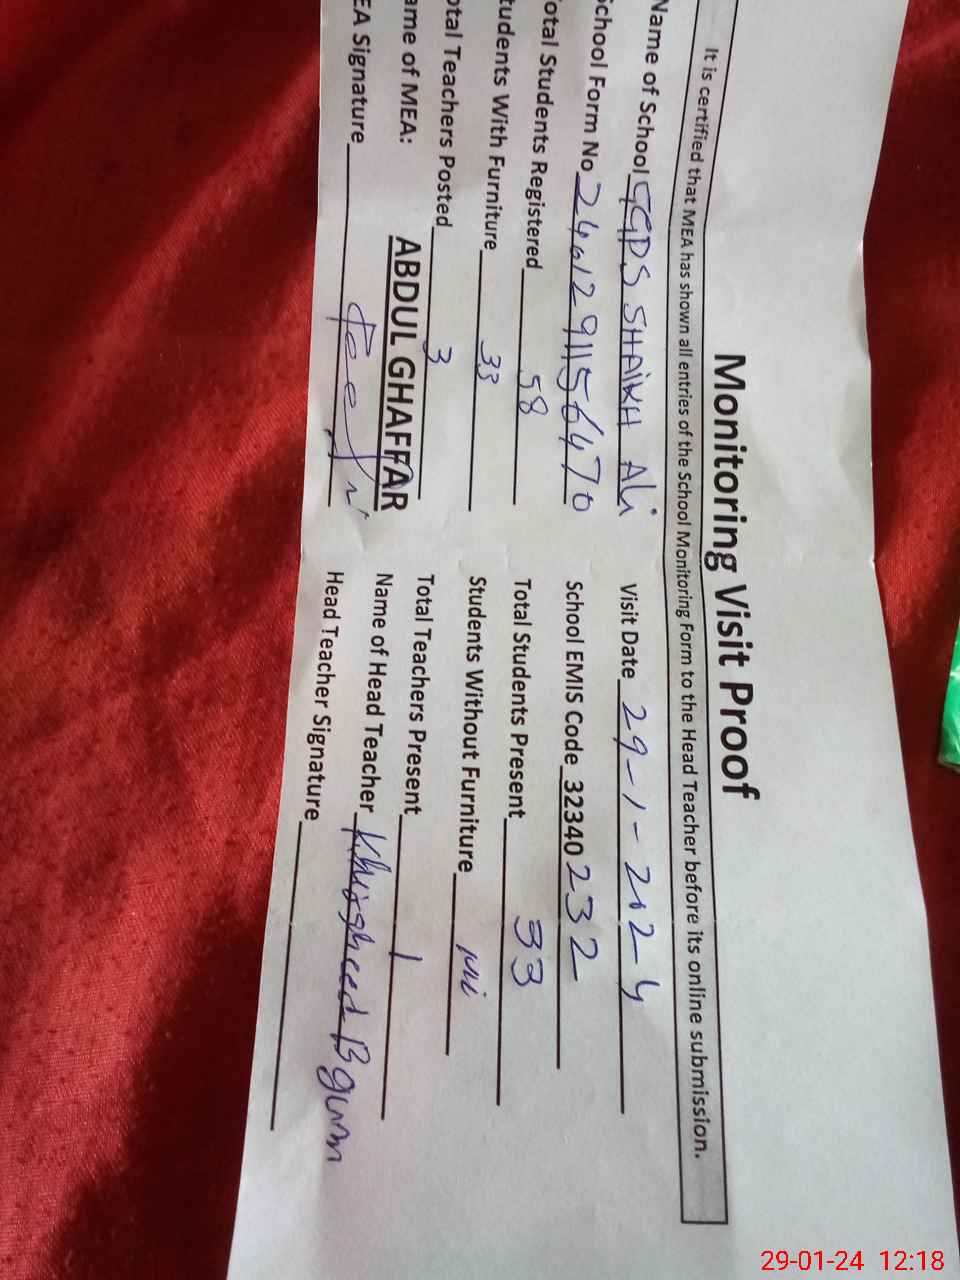 Monitoring Visit Proof
It is certified that MEA has shown all entries of the School Monitoring Form to the Head Teacher before its online submission.
Name of School GGPS SHAIKH Ali Visit Date 29-1-2024
School Form No 2401291156470 School EMIS Code 32340232
otal Students Registered 58 Total Students Present 33
tudents With Furniture 33 Students Without Furniture Nil
otal Teachers Posted 3 Total Teachers Present 1
ame of MEA: ABDUL GHAFFAR Name of Head Teacher Khursheed Bgum
EA Signature Head Teacher Signature
29-01-24 12:18